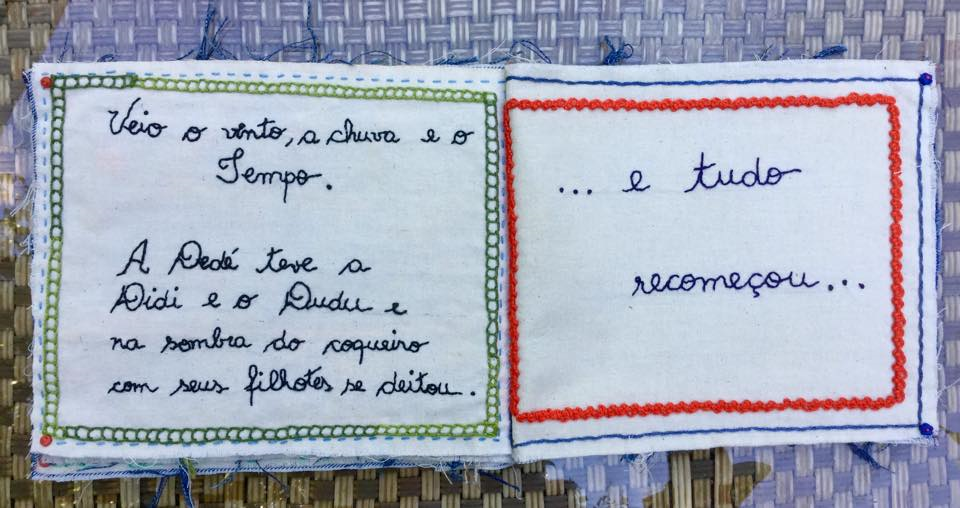 Veio o vento, a chuva e o
Tempo.
A Dedé teve a
Didi e o Dudu e
na sombra do coqueiro
com seus filhotes se deitou.
... e tudo
recomeçou...